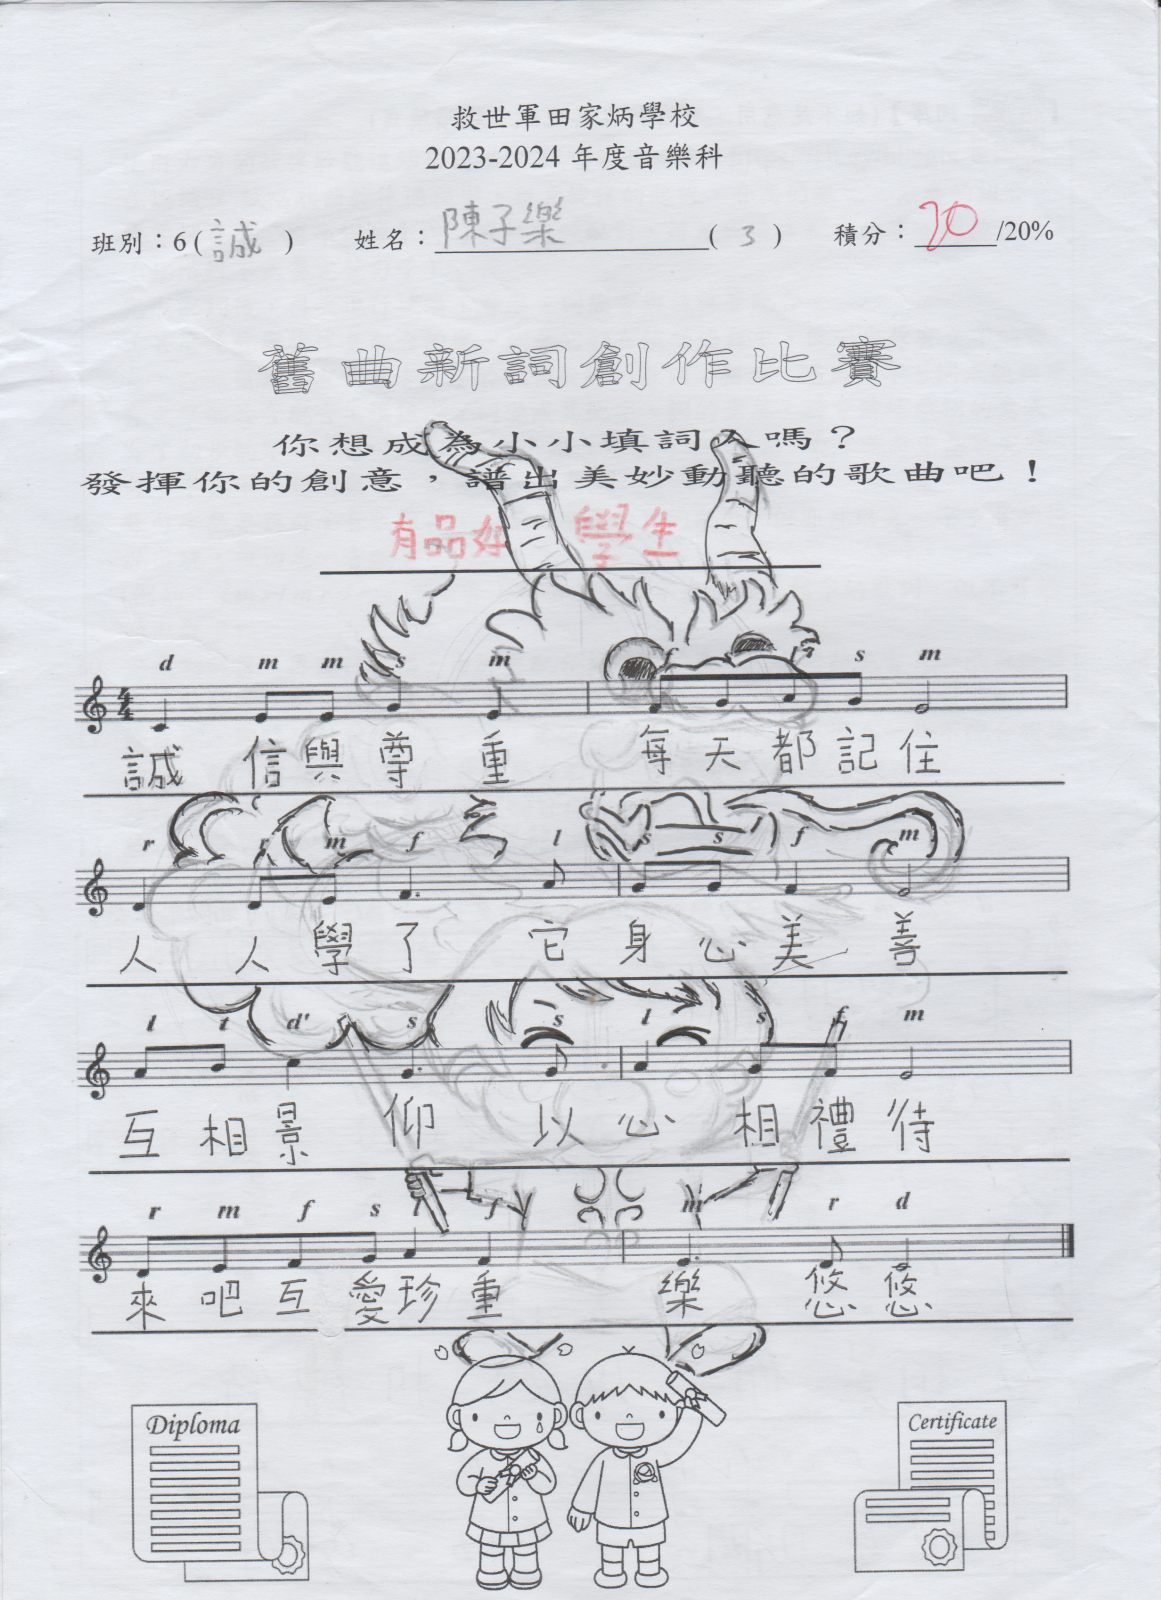 救世軍田家炳學校
2023-2024 年度音樂科
班別：6 ( 誠 ) 姓名：陳子樂 ( 3 ) 積分：20/20%
舊曲新詞創作比賽
你想成為小小填詞人嗎？
發揮你的創意，譜出美妙動聽的歌曲吧！
有品好 學生
d m m s m f s m
誠信與尊重 每天都記住
r r m f l s s f m
人人學了它身心美善
l t d' s s l s f m
互相景仰以心相禮待
r m f s f m r d
來吧互愛珍重樂悠悠
Diploma
Certificate